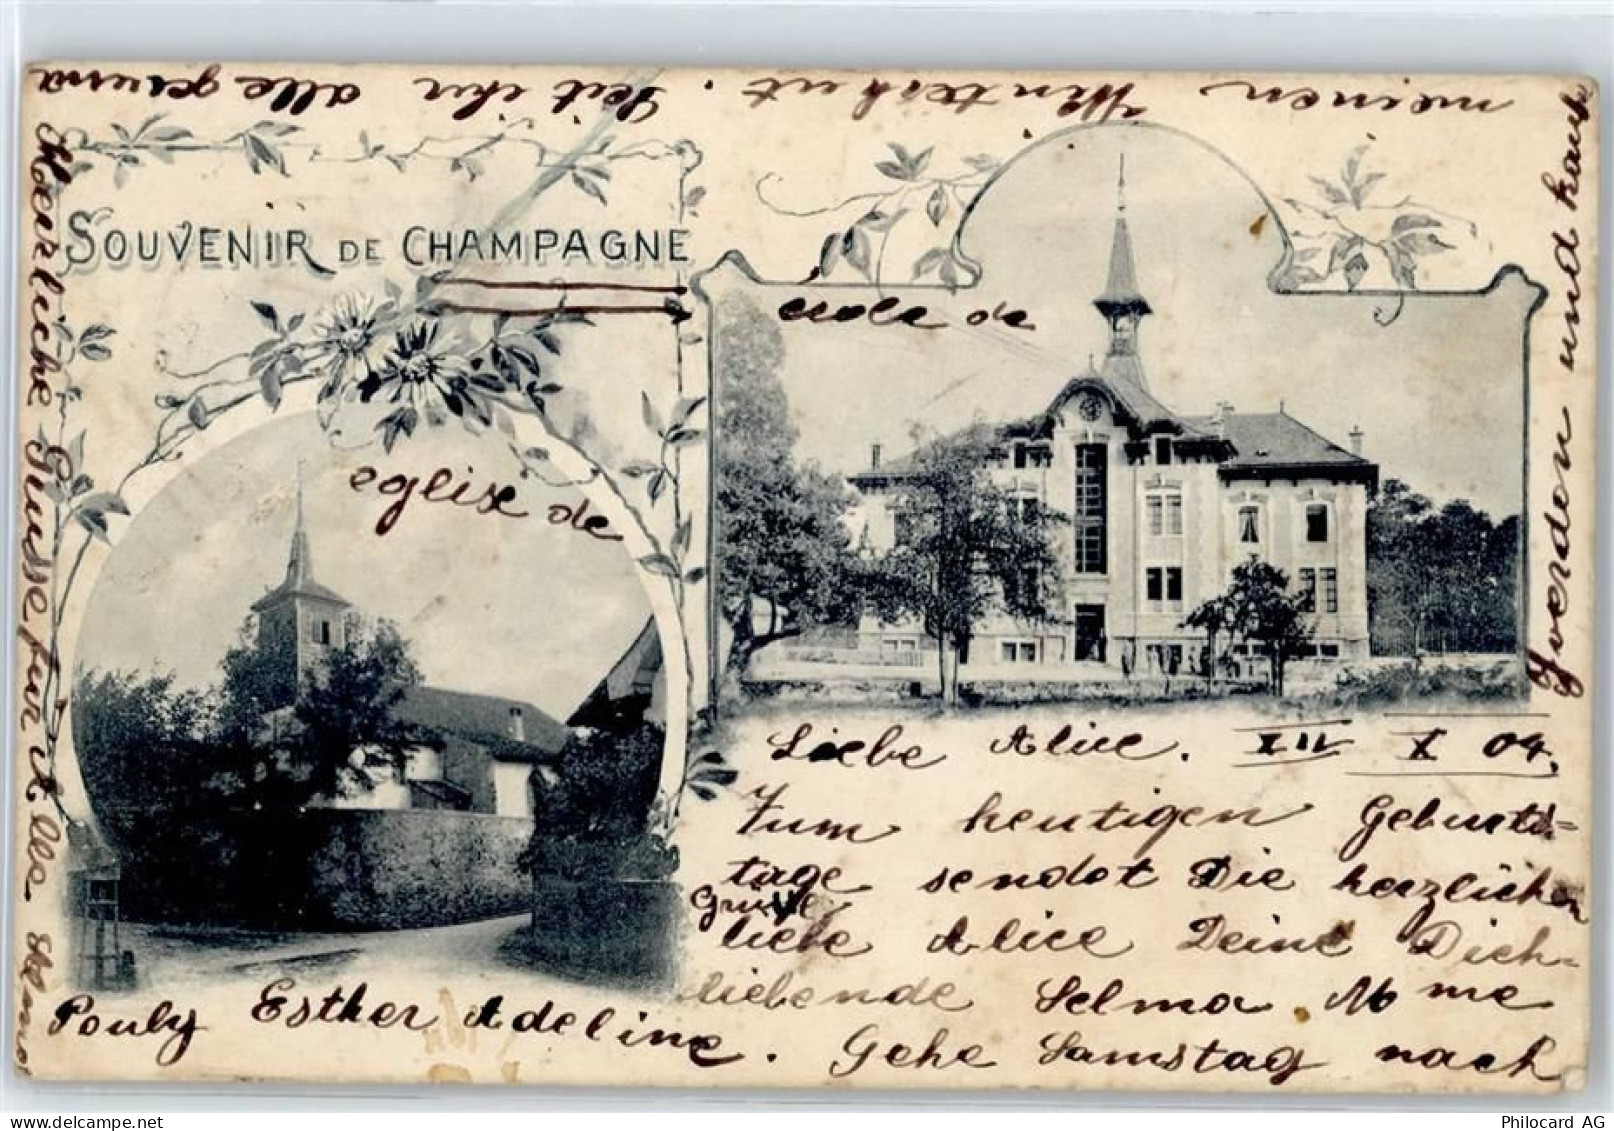 SOUVENIR DE CHAMPAGNE
ecole de
eglise de
Liebe Alice. XII X 04.
Zum heutigen Geburts=
tage sendet Die herzlichen
Grüsse
liebe Alice Deine Dich-
liebende Selma. Mme
Pouly Esther Adeline. Gehe Samstag nach
Yverdon und kaufe
meinen Winterhut. Seit ihr alle gesund
Herzliche Grüsse für alle. Selma
Philocard AG